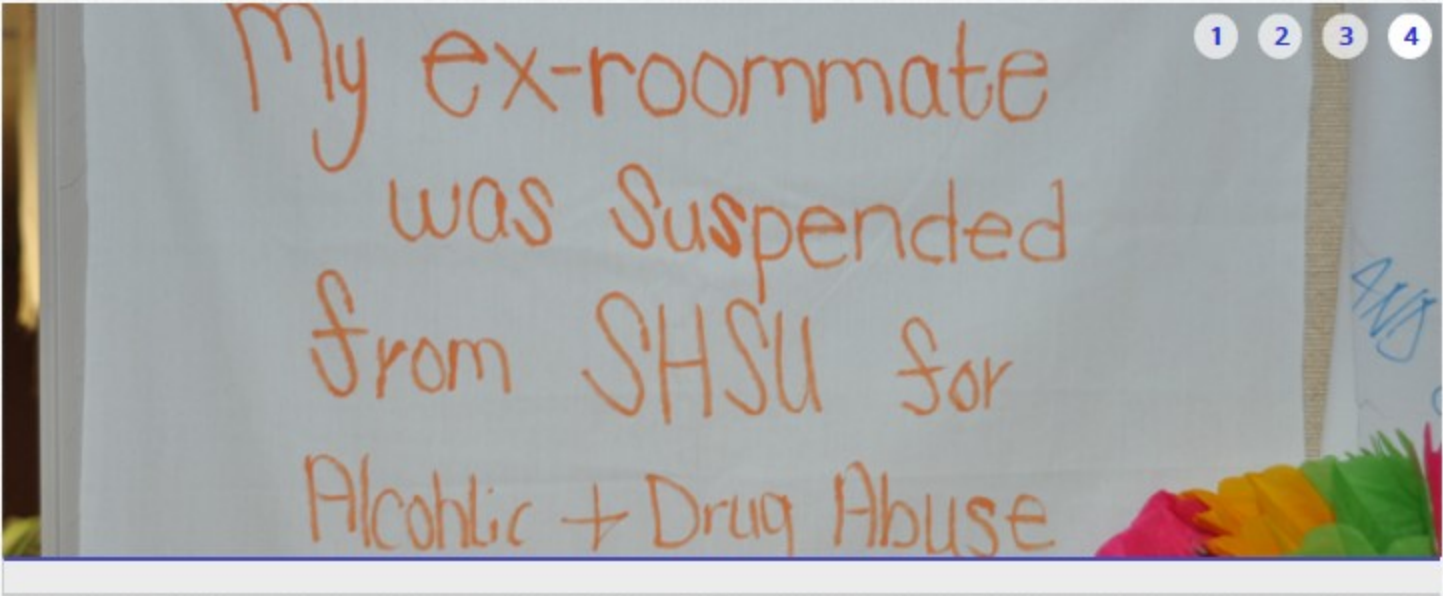 1 2 3 4
My ex-roommate
was Suspended
from SHSU for
Alcohlic + Drug Abuse
AND